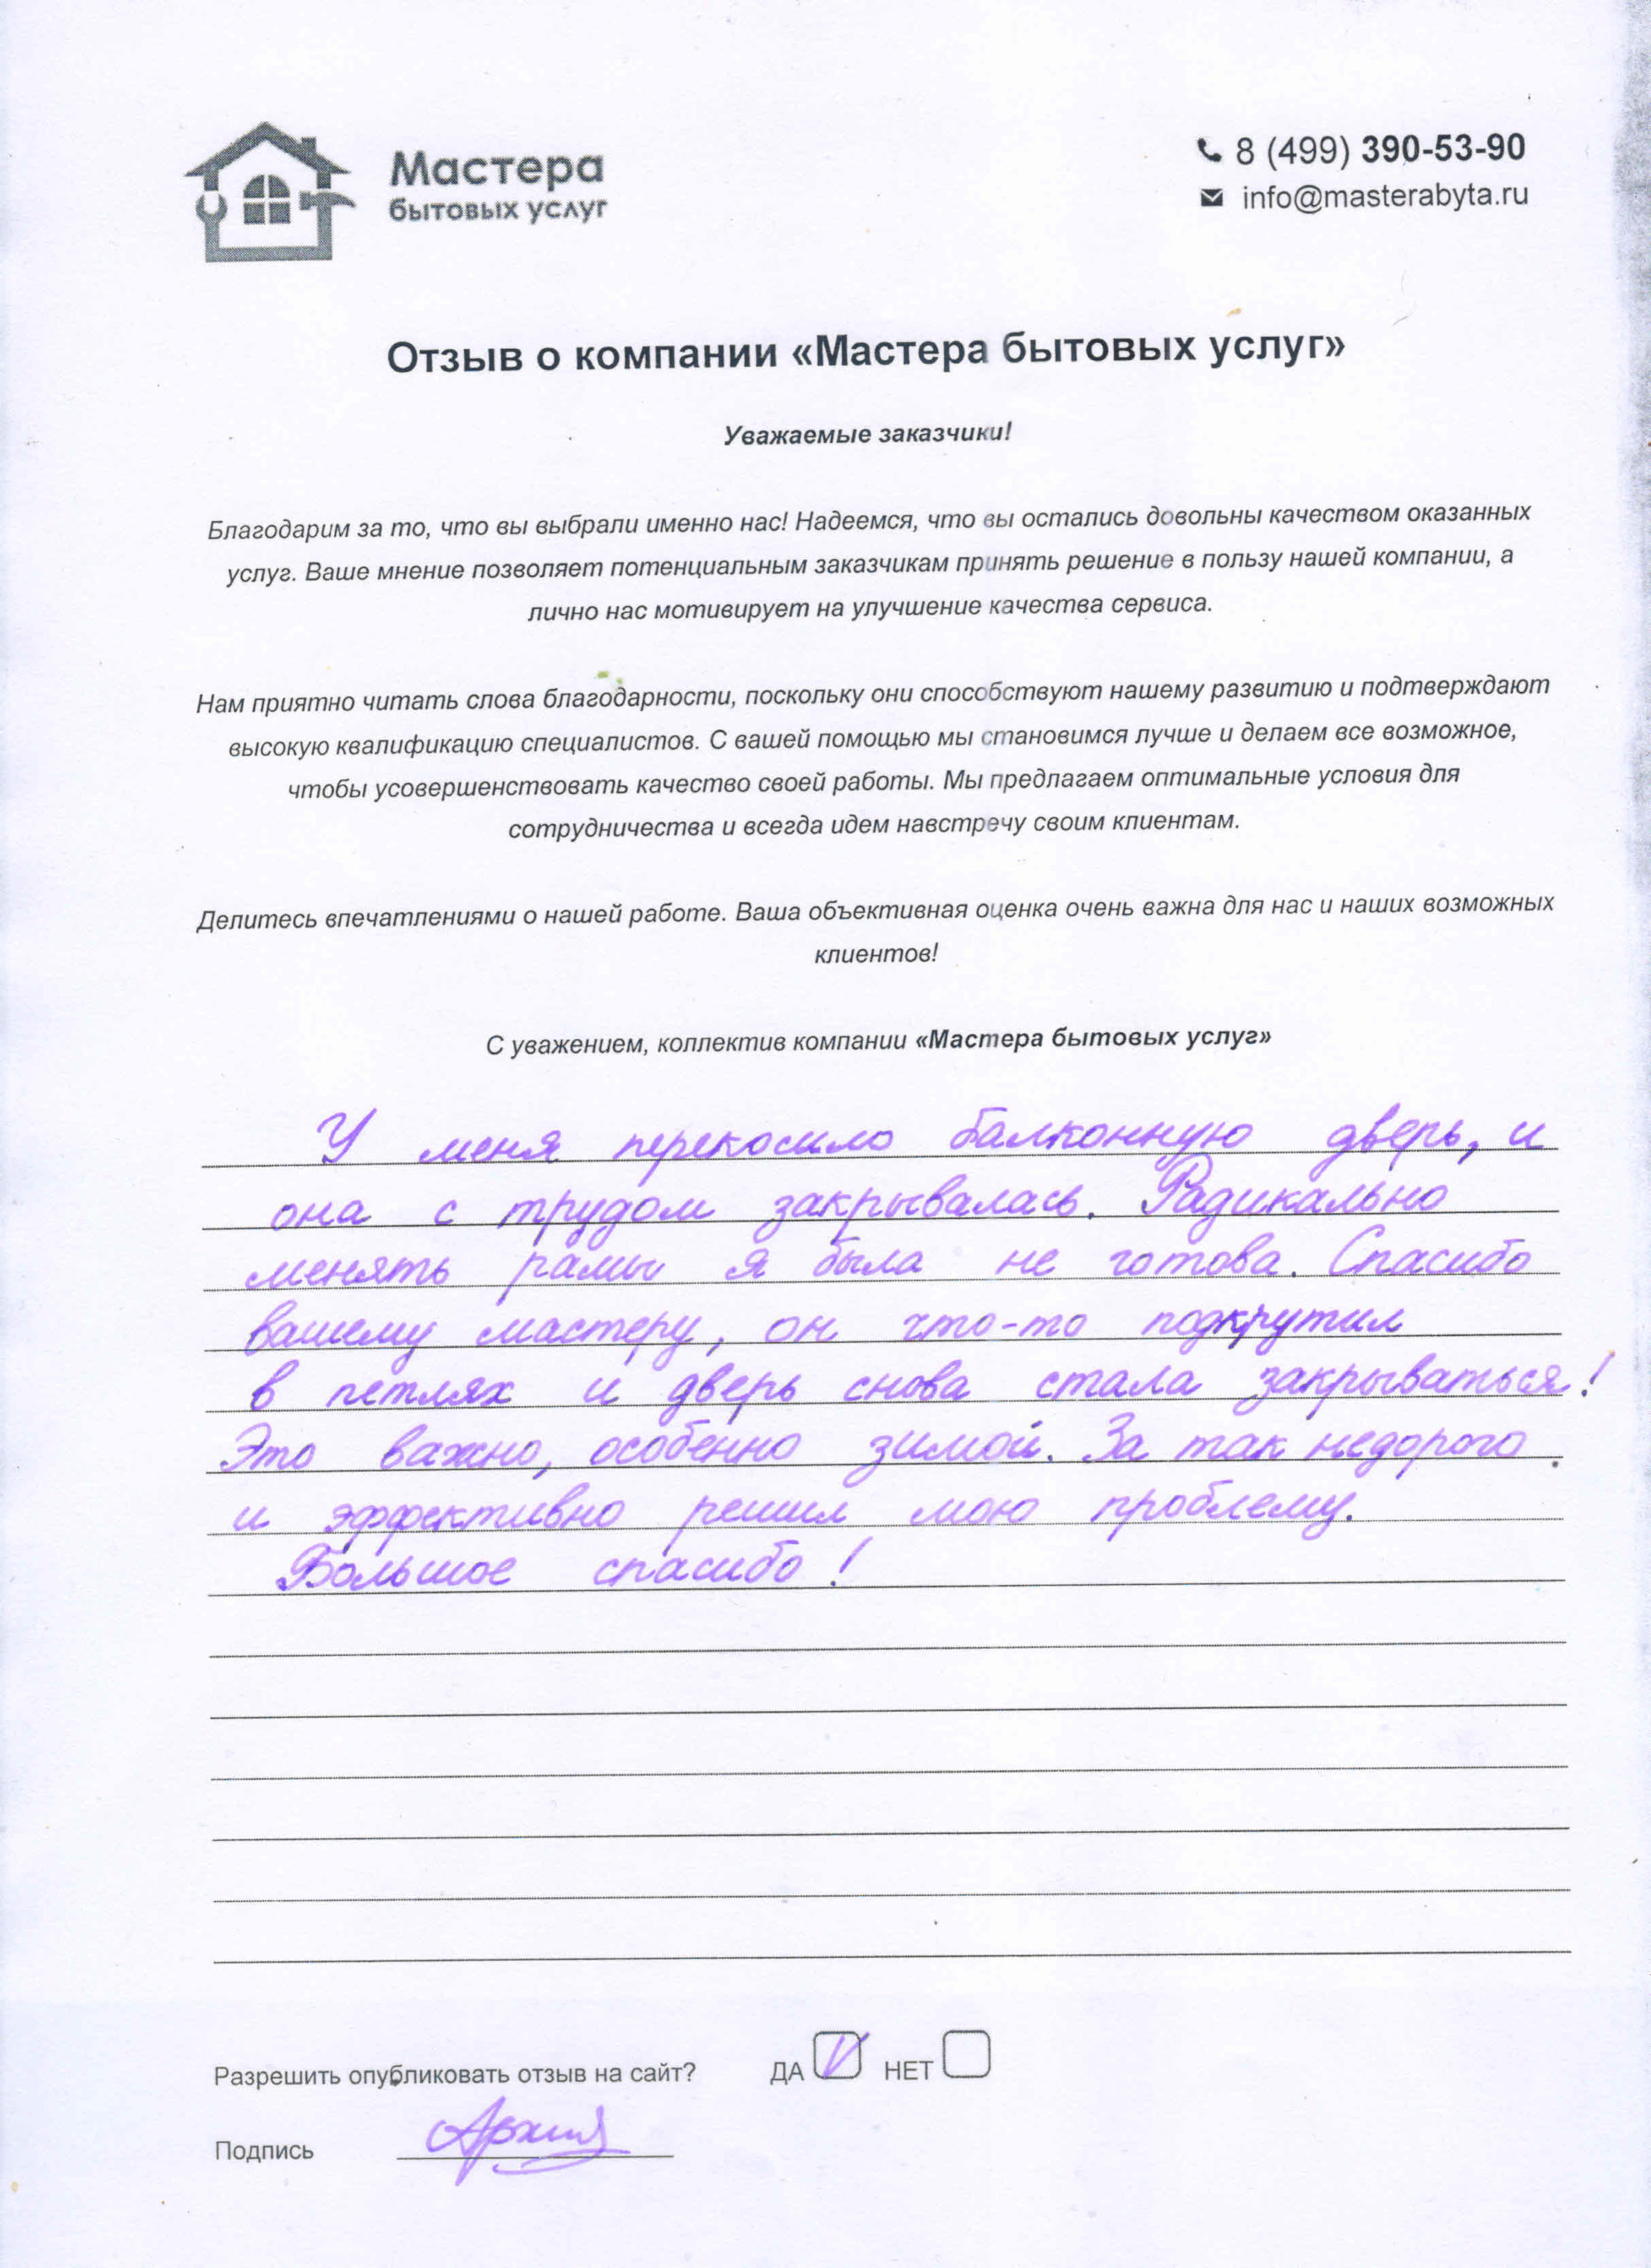 Мастера
бытовых услуг
8 (499) 390-53-90
info@masterabyta.ru
Отзыв о компании «Мастера бытовых услуг»
Уважаемые заказчики!
Благодарим за то, что вы выбрали именно нас! Надеемся, что вы остались довольны качеством оказанных
услуг. Ваше мнение позволяет потенциальным заказчикам принять решение в пользу нашей компании, а
лично нас мотивирует на улучшение качества сервиса.
Нам приятно читать слова благодарности, поскольку они способствуют нашему развитию и подтверждают
высокую квалификацию специалистов. С вашей помощью мы становимся лучше и делаем все возможное,
чтобы усовершенствовать качество своей работы. Мы предлагаем оптимальные условия для
сотрудничества и всегда идем навстречу своим клиентам.
Делитесь впечатлениями о нашей работе. Ваша объективная оценка очень важна для нас и наших возможных
клиентов!
С уважением, коллектив компании «Мастера бытовых услуг»
У меня перекосило балконную дверь, и
она с трудом закрывалась. Радикально
менять рамы я была не готова. Спасибо
вашему мастеру, он что-то подкрутил
в петлях и дверь снова стала закрываться!
Это важно, особенно зимой. За так недорого
и эффективно решил мою проблему.
Большое спасибо!
Разрешить опубликовать отзыв на сайт? ДА V НЕТ
Подпись